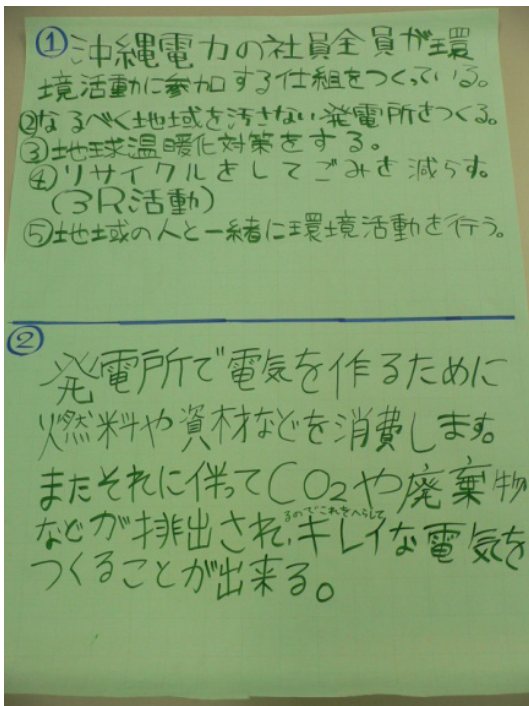 ①沖縄電力の社員全員が環
境活動に参加する仕組をつくっている。
②なるべく地域を汚さない発電所をつくる。
③地球温暖化対策をする。
④リサイクルをしてごみを減らす。
(3R活動)
⑤地域の人と一緒に環境活動を行う。
②
発電所で電気を作るために
燃料や資材などを消費します。
またそれに伴ってCO2や廃棄物
るのでこれをへらして
などが排出され、キレイな電気を
つくることが出来る。